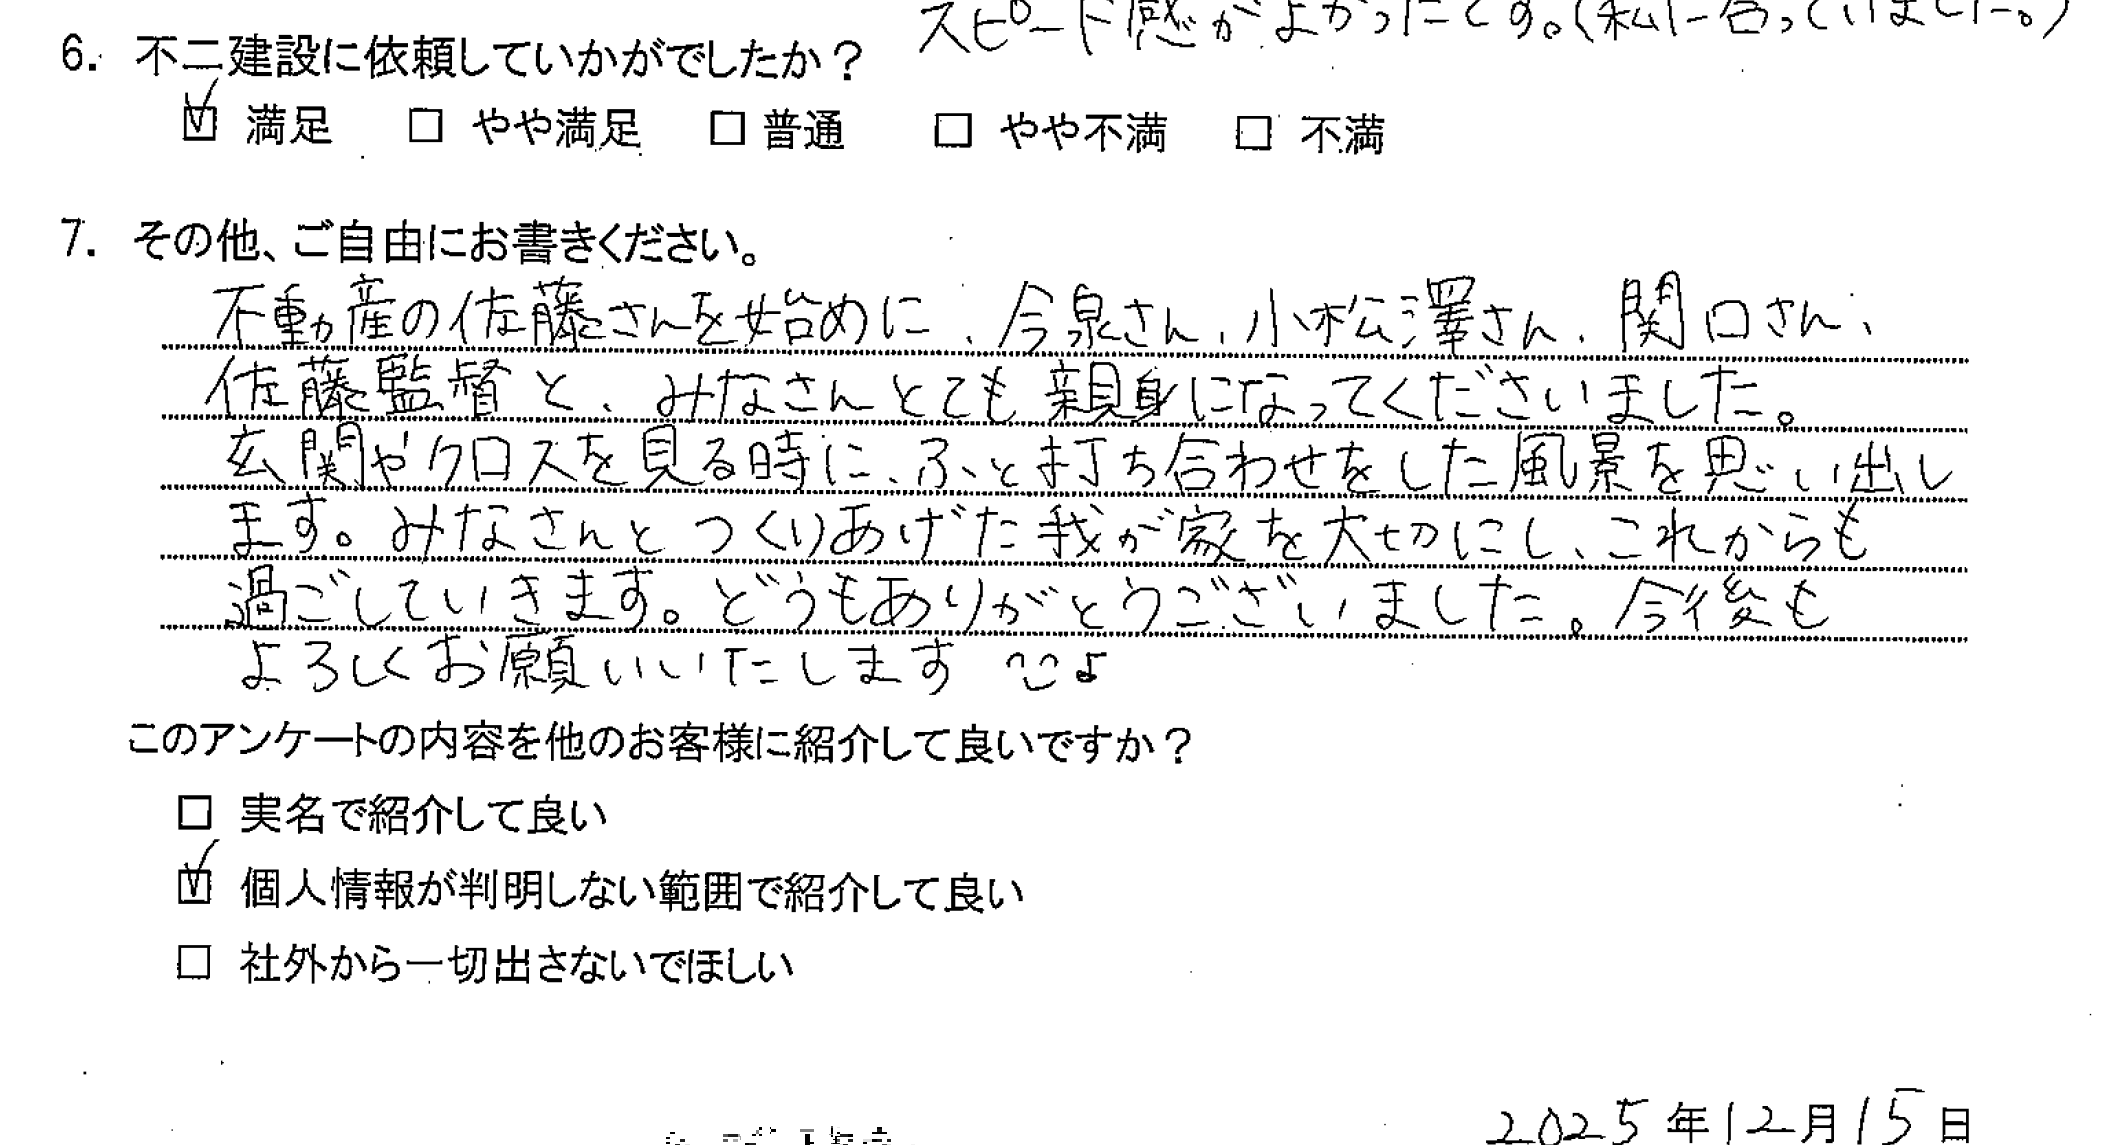 スピード感がよかったです。(私に合っていました。)
6. 不二建設に依頼していかがでしたか？
☑ 満足 □ やや満足 □ 普通 □ やや不満 □ 不満
7. その他、ご自由にお書きください。
不動産の佐藤さんを始めに、今泉さん、小松澤さん、関口さん、
佐藤監督と、みなさんとても親身になってくださいました。
玄関やクロスを見る時に、ふと打ち合わせをした風景を思い出し
ます。みなさんとつくりあげた我が家を大切にし、これからも
過ごしていきます。どうもありがとうございました。今後も
よろしくお願いいたします
このアンケートの内容を他のお客様に紹介して良いですか？
□ 実名で紹介して良い
☑ 個人情報が判明しない範囲で紹介して良い
□ 社外から一切出さないでほしい
2025年12月15日